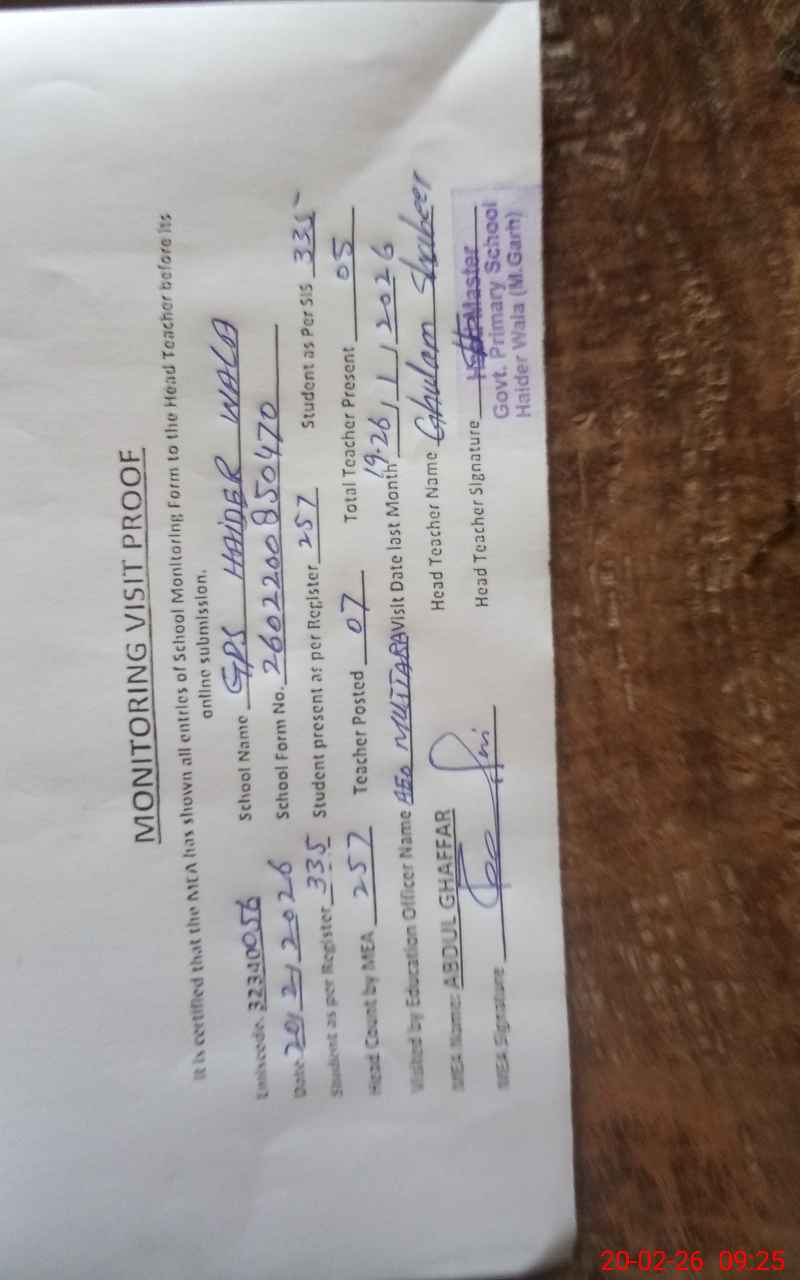 MONITORING VISIT PROOF
It is certified that the MEA has shown all entries of School Monitoring Form to the Head Teacher before its
online submission.
Emiscode. 32340056 School Name GPS HAIDER WALA
Date 20/2/2026 School Form No. 2602200850470
Student as per Register 335 Student present as per Register 257 Student as Per SIS 335
Head Count by MEA 257 Teacher Posted 07 Total Teacher Present 05
Visited by Education Officer Name AEO Visit Date last Month 19-26/1/2026
MEA Name: ABDUL GHAFFAR Head Teacher Name Ghulam Shabeer
MEA Signature Head Teacher Signature
Head Master
Govt. Primary School
Haider Wala (M.Garh)
20-02-26 09:25